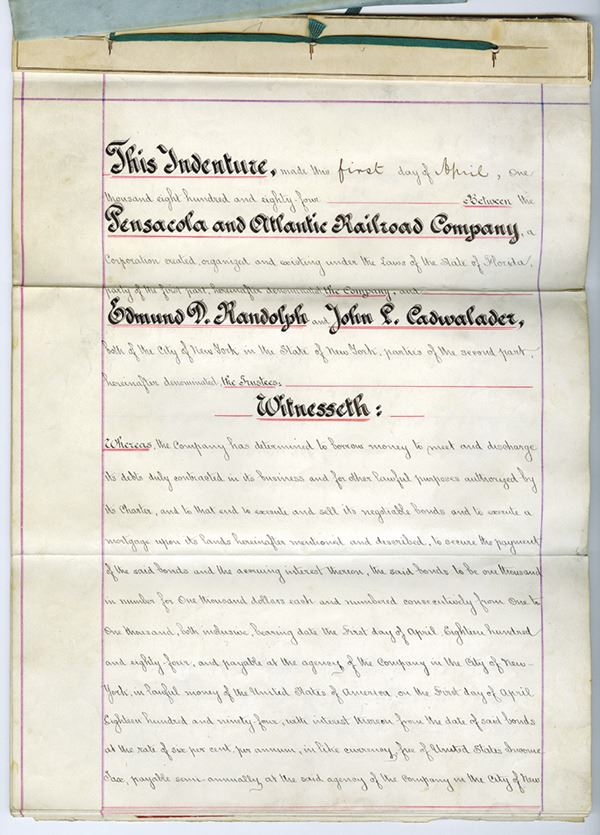 This Indenture, made this first day of April, One
thousand eight hundred and eighty-four Between the
Pensacola and Atlantic Railroad Company, a
Corporation created, organized and existing under the Laws of the State of Florida,
party of the first part, hereinafter denominated the Company, and
Edmund D. Randolph and John L. Cadwalader,
both of the City of New York in the State of New York, parties of the second part,
hereinafter denominated the Trustees:
Witnesseth:
Whereas, the Company has determined to borrow money to meet and discharge
its debts duly contracted in its business and for other lawful purposes authorized by
its Charter, and to that end to execute and sell its negotiable bonds and to execute a
mortgage upon its lands hereinafter mentioned and described, to secure the payment
of the said bonds and the accruing interest thereon, the said bonds to be one thousand
in number for One thousand dollars each and numbered consecutively from One to
One thousand, both inclusive, bearing date the First day of April Eighteen hundred
and eighty-four, and payable at the agency of the Company in the City of New-
York, in lawful money of the United States of America, on the First day of April
Eighteen hundred and ninety-four, with interest thereon from the date of said bonds
at the rate of six per cent. per annum, in like currency, free of United States Income
Tax, payable semi-annually at the said agency of the Company in the City of New